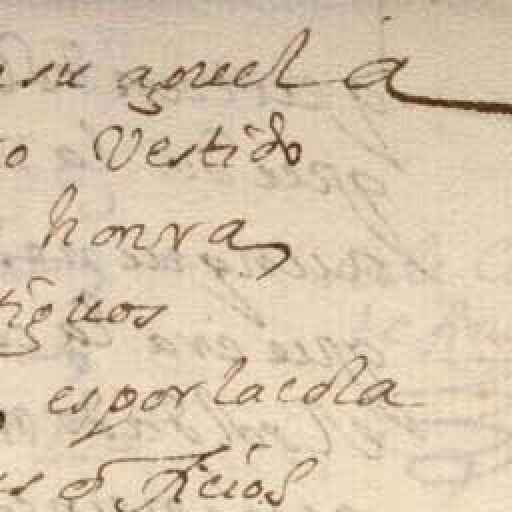 su aguela
o Vestido
honrra,
tiguos
esporlacola
s oficios